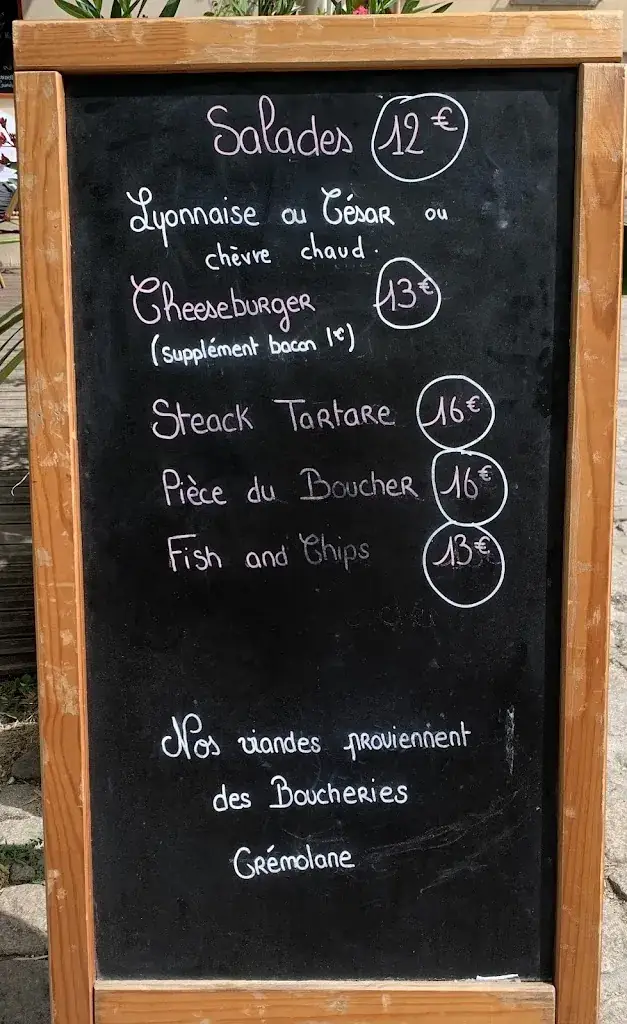 Salades 12€
Lyonnaise ou César ou
chèvre chaud.
Cheeseburger 13€
(supplément bacon 1€)
Steack Tartare 16€
Pièce du Boucher 16€
Fish and Chips 13€
Nos viandes proviennent
des Boucheries
Crémolane